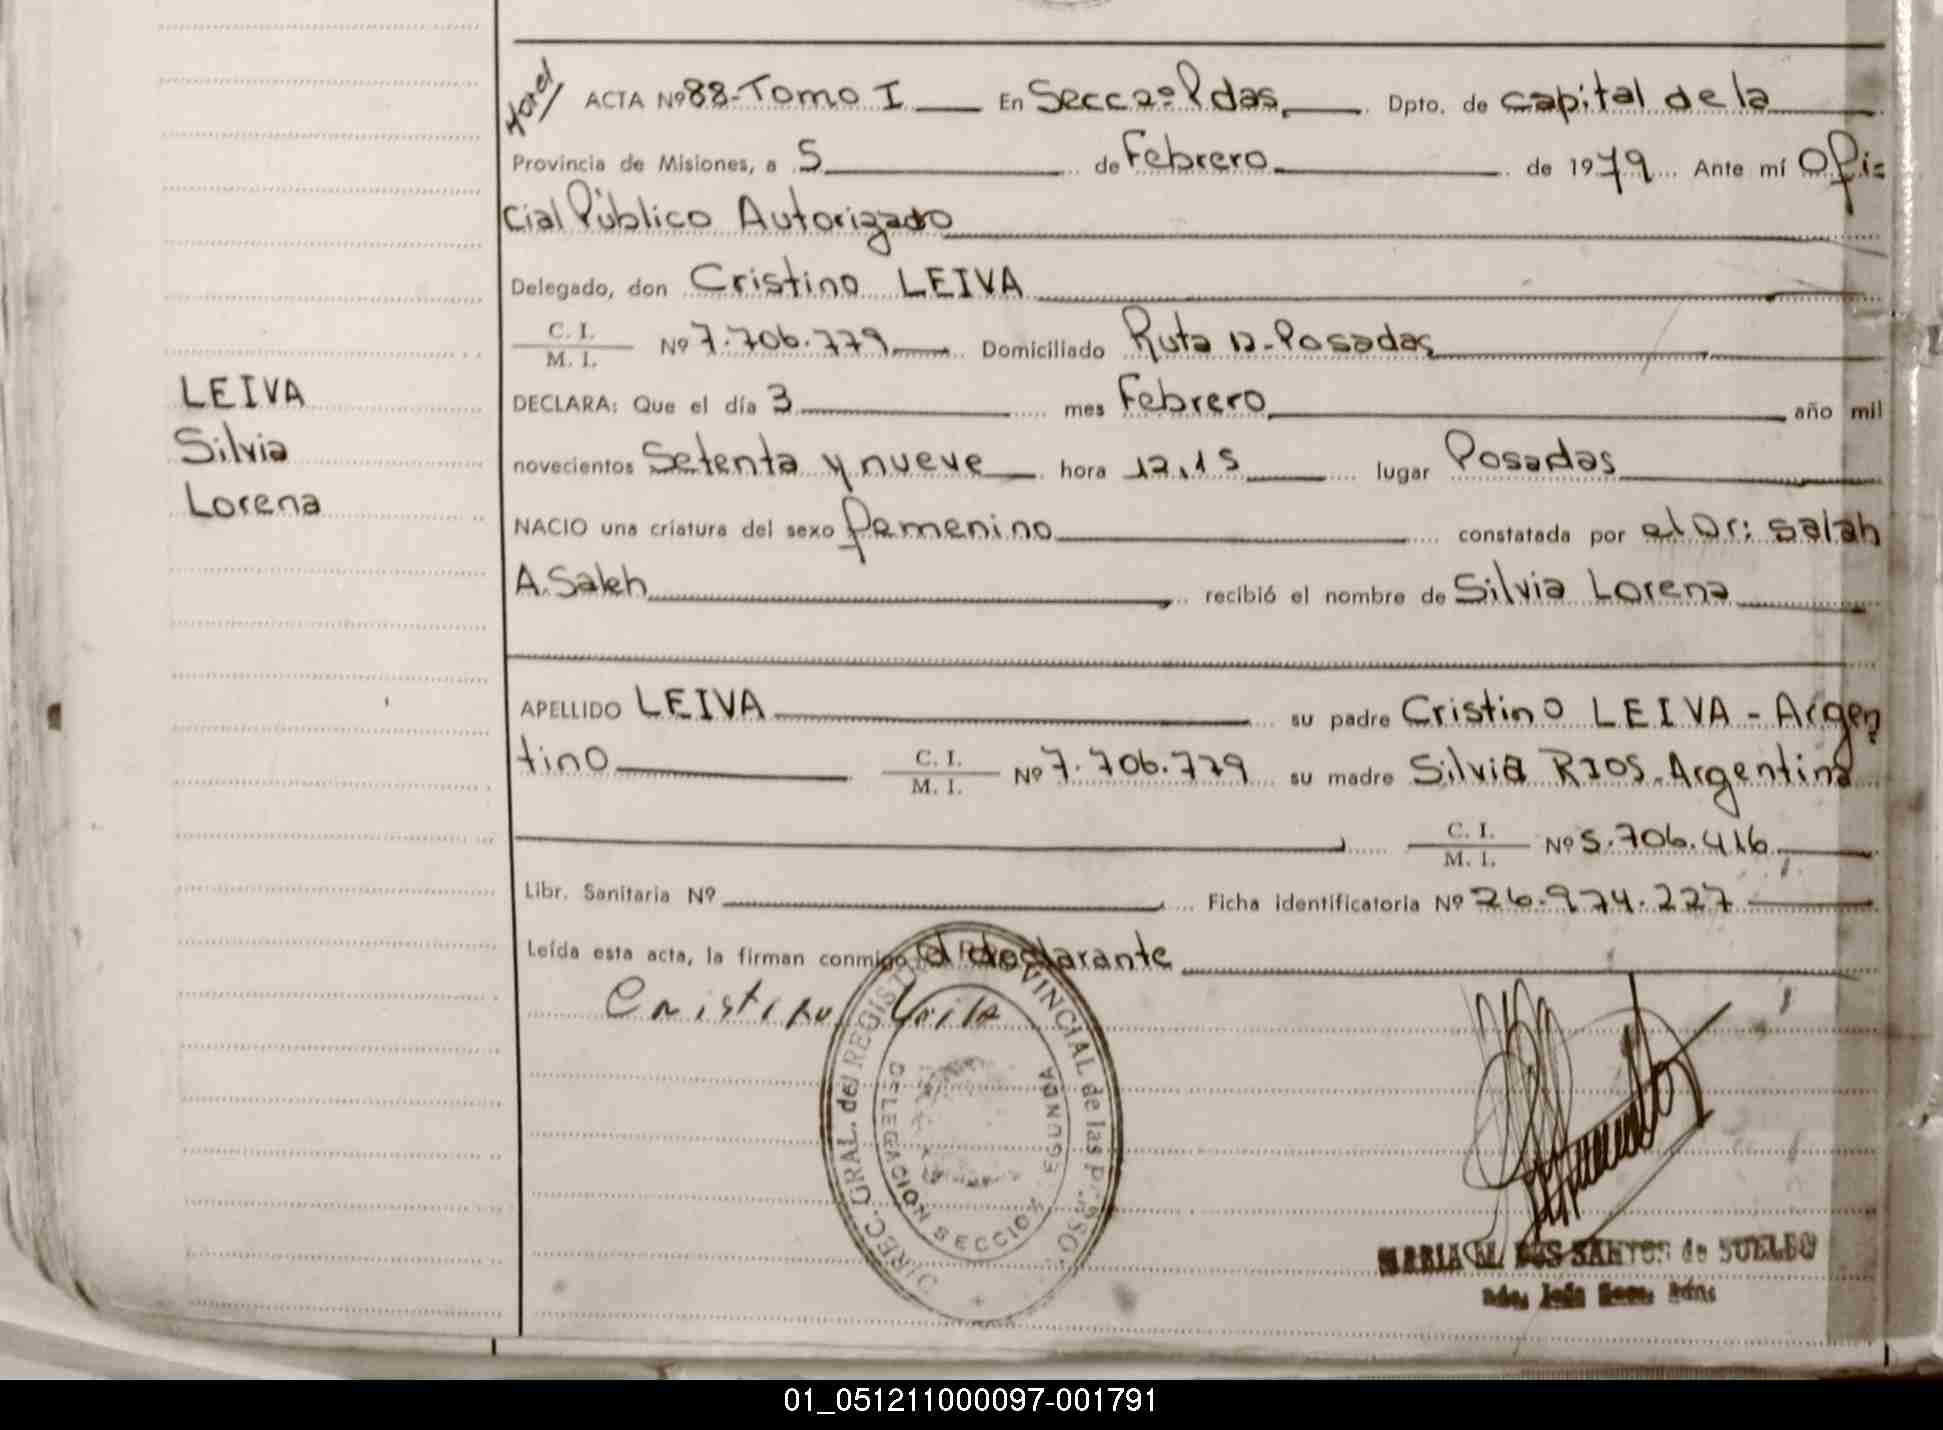 ACTA Nº 88-Tomo I En Secc 2º Pdas, Dpto. de capital de la
Provincia de Misiones, a 5 de Febrero de 1979 Ante mí Ofi=
cial Público Autorizado
Delegado, don Cristino LEIVA
C. I.
M. I. Nº 7.706.779 Domiciliado Ruta 12-Posadas
LEIVA
Silvia
Lorena
DECLARA: Que el día 3 mes Febrero año mil
novecientos Setenta y nueve hora 12,15 lugar Posadas
NACIO una criatura del sexo femenino constatada por el Dr: Salah
A. Saleh recibió el nombre de Silvia Lorena
APELLIDO LEIVA su padre Cristino LEIVA - Argen
tino C. I. M. I. Nº 7.706.779 su madre Silvia RIOS-Argentina
C. I. M. I. Nº 5.706.416
Libr. Sanitaria Nº Ficha identificatoria Nº 26.974.227
Leída esta acta, la firman conmigo el declarante
Cristino Leiva
DIREC. GRAL. del REGISTRO PROVINCIAL de las PERSO.
DELEGACION SECCION SEGUNDA
MARIA DOS SANTOS de SUELDO
01_051211000097-001791